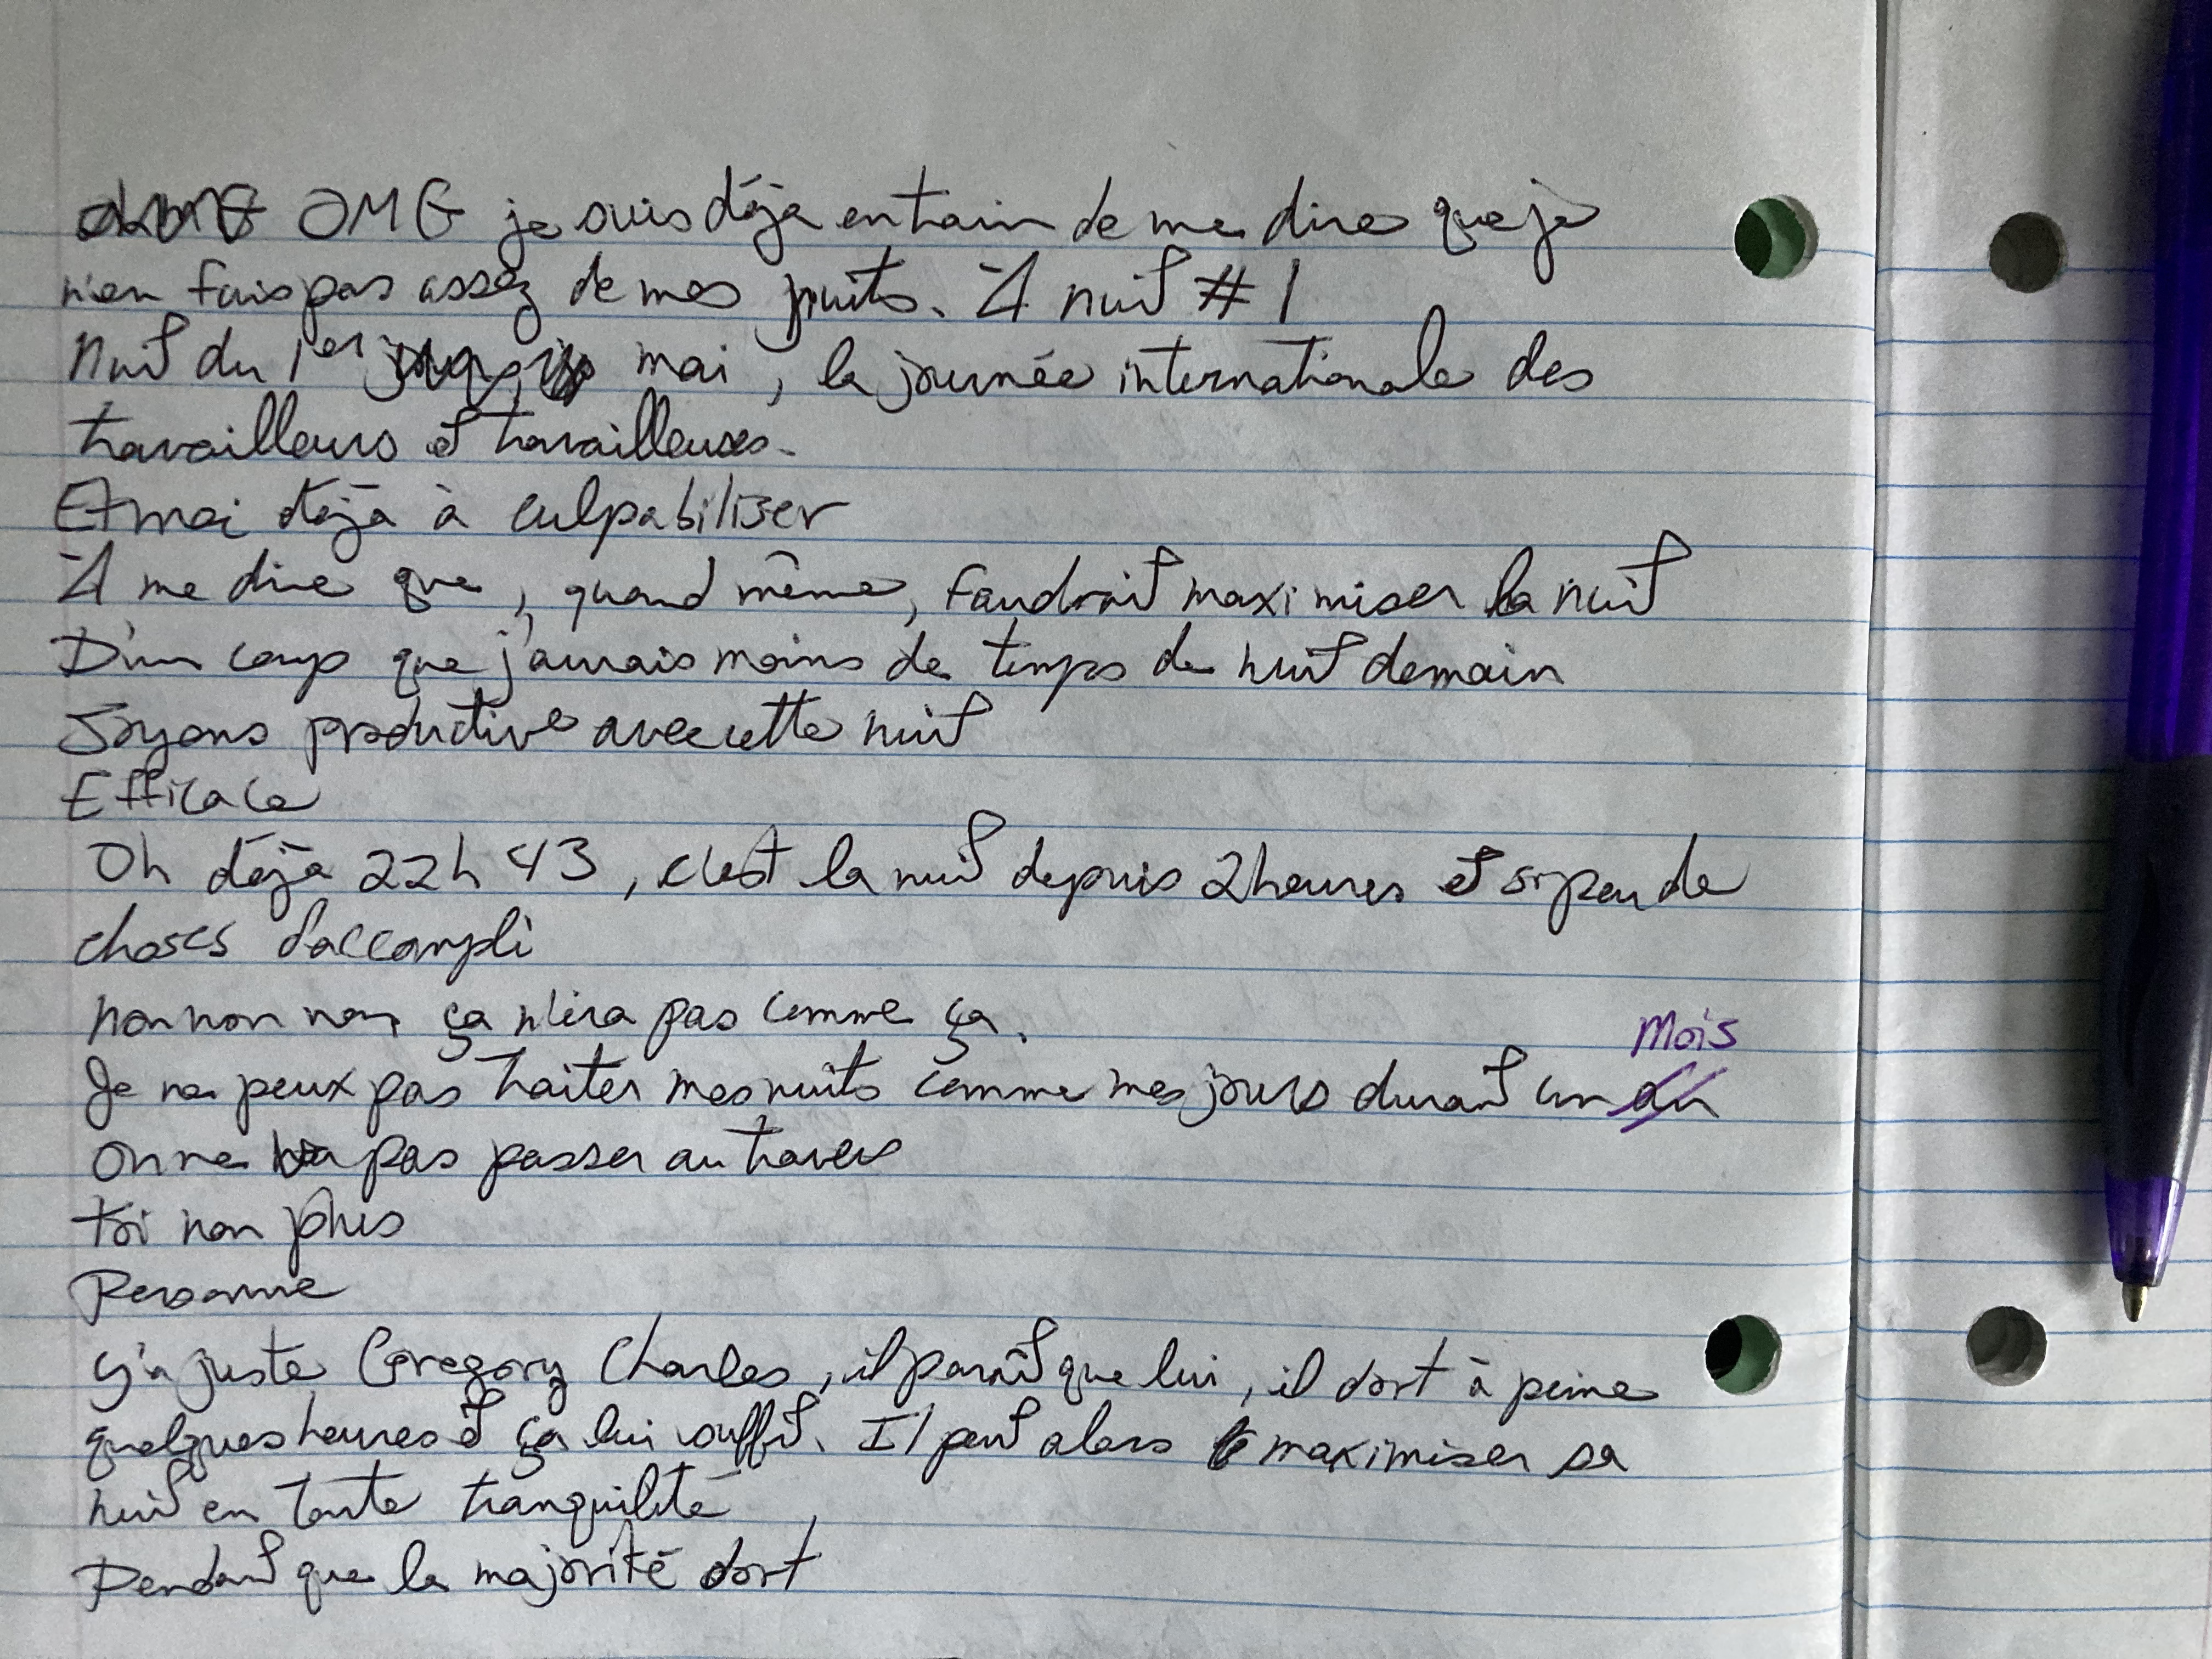 OMG je suis déjà en train de me dire que je
n'en fais pas assez de mes nuits. À nuit #1
Nuit du 1er mai, la journée internationale des
travailleurs et travailleuses.
Et moi déjà à culpabiliser
À me dire que, quand même, faudrait maximiser la nuit
D'un coup que j'aurais moins de temps de nuit demain
Soyons productive avec cette nuit
Efficace
Oh déjà 22h43, c'est la nuit depuis 2 heures et si peu de
choses d'accompli
non non non ça n'ira pas comme ça.
Mois
Je ne peux pas traiter mes nuits comme mes jours durant un an
on ne va pas passer au travers
toi non plus
Personne
Y'a juste Gregory Charles, il paraît que lui, il dort à peine
quelques heures et ça lui suffit. Il peut alors maximiser sa
nuit en toute tranquilité
Pendant que la majorité dort